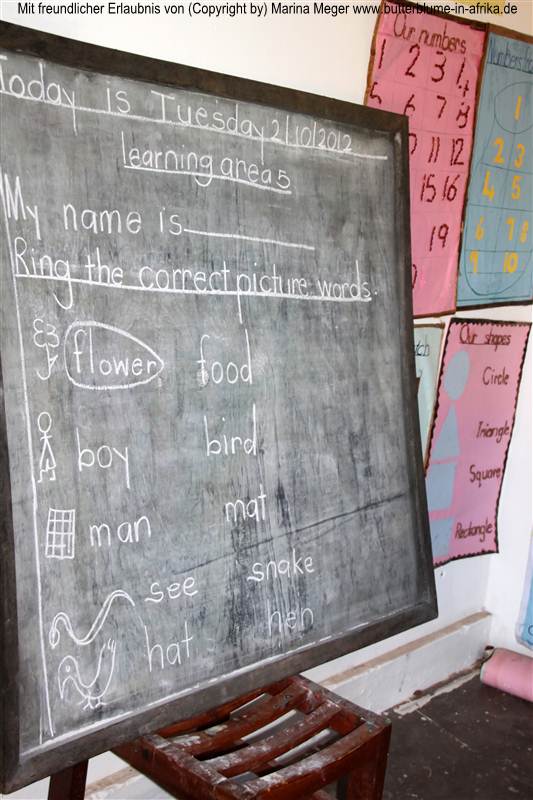 Mit freundlicher Erlaubnis von (Copyright by) Marina Meger www.butterblume-in-afrika.de
Today is Tuesday 2/10/2012
learning area 5
My name is
Ring the correct picture words.
flower food
boy bird
man mat
see snake
hat hen
Our numbers
1 2 3 4
5 6 7 8
11 12
15 16
19
Numbers
1
2 3
4 5
6 7 8
9 10
Our shapes
Circle
Triangle
Square
Rectangle